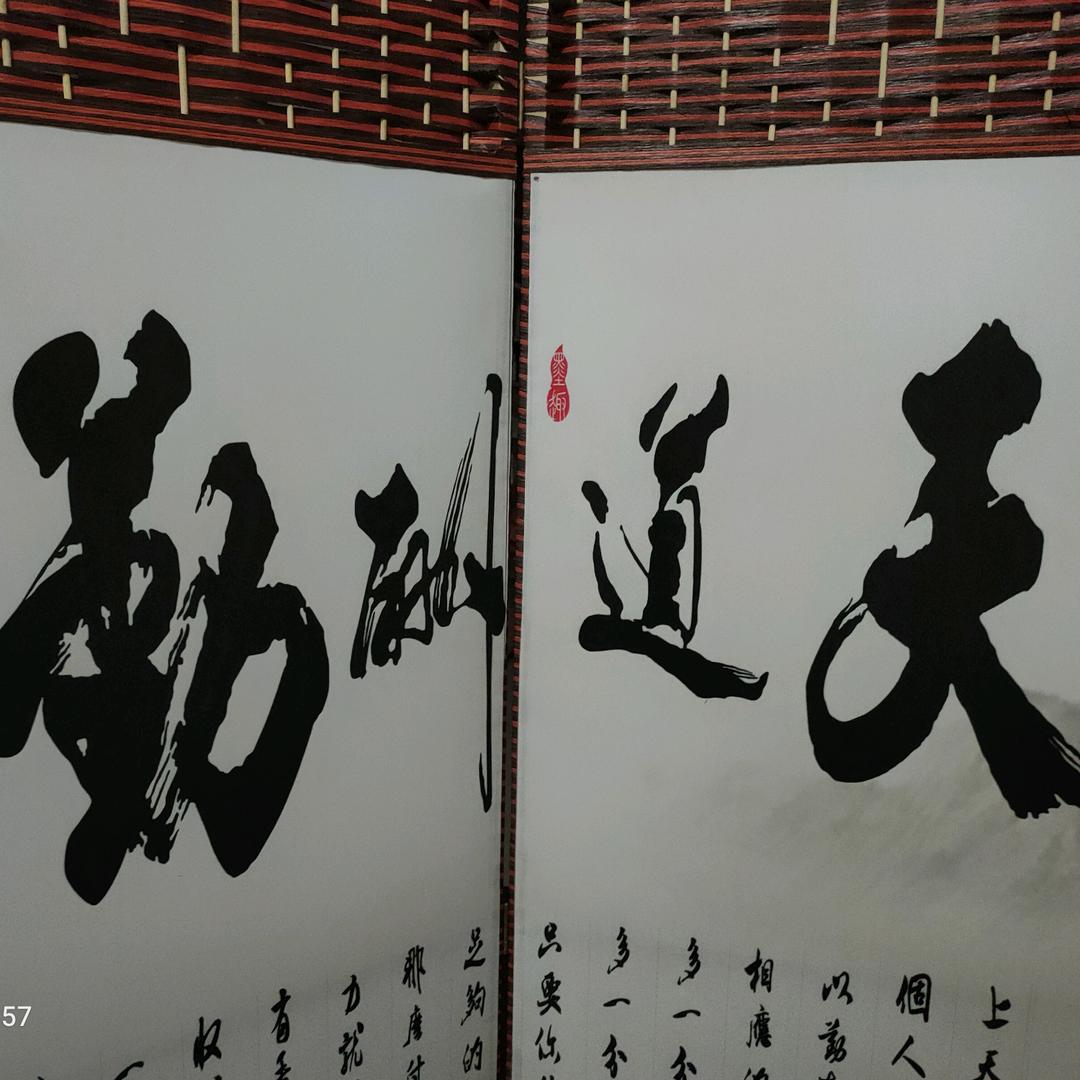 天道酬勤
墨趣
上天
個人
以勤
相應
多一分
多一分
只要你
足夠的
那麼付
力就
有
收
57